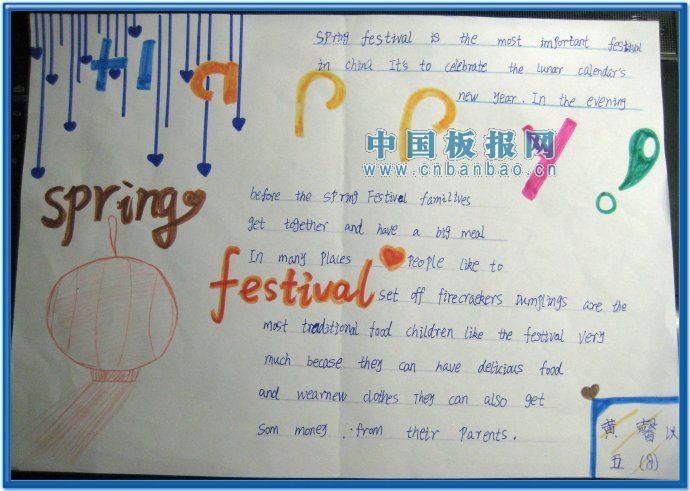 spring festival is the most important festival
in china It's to celebrate the lunar calendar's
new year. In the evening
HAPPY!
中国板报网
www.cnbanbao.cn
spring
before the spring Festival families
get together and have a big meal
In many Places People like to
festival
set off firecraekers Dumplings are the
most traditional food children like the festival very
much becase they can have delicious food
and wearnew clothes They can also get
som money . from their Parents.
黄馨
五(8)